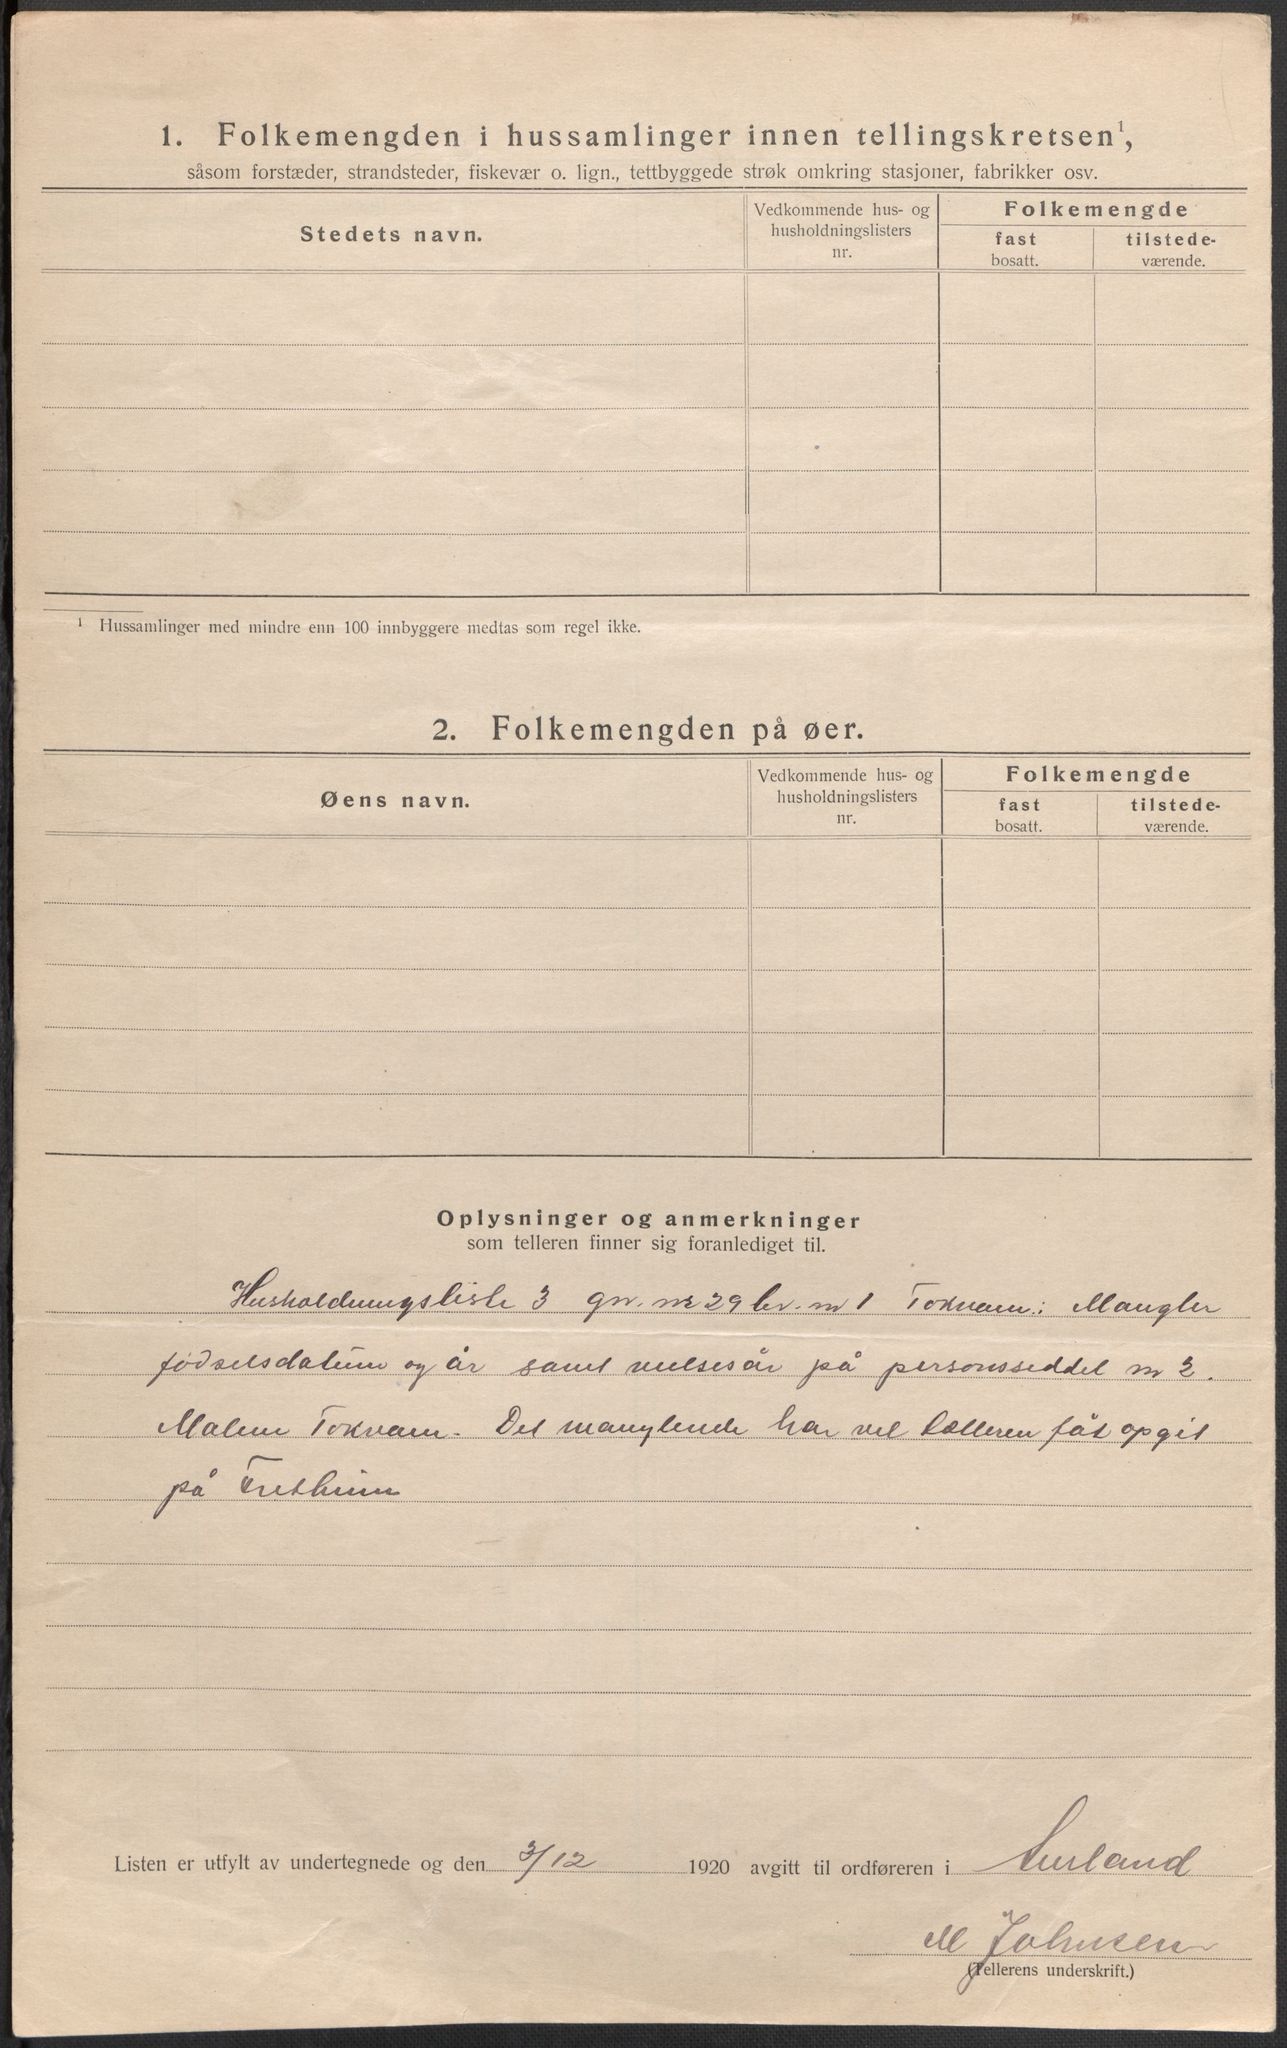 1. Folkemengden i hussamlinger innen tellingskretsen¹,
såsom forstæder, strandsteder, fiskevær o. lign., tettbyggede strøk omkring stasjoner, fabrikker osv.
Stedets navn.
Vedkommende hus- og
husholdningslisters
nr.
Folkemengde
fast
bosatt.
tilstede-
værende.
¹ Hussamlinger med mindre enn 100 innbyggere medtas som regel ikke.
2. Folkemengden på øer.
Øens navn.
Vedkommende hus- og
husholdningslisters
nr.
Folkemengde
fast
bosatt.
tilstede-
værende.
Oplysninger og anmerkninger
som telleren finner sig foranlediget til.
Husholdningsliste 3 gn. nr 29 br. nr 1 Tokvam: Mangler
fødselsdatum og år samt vielsesår på personsseddel nr 2.
Malene Tokvam. Det manglende har vel tælleren fåt opgit
på Fretheim
Listen er utfylt av undertegnede og den 3/12 1920 avgitt til ordføreren i Aurland
M Johnsen
(Tellerens underskrift.)